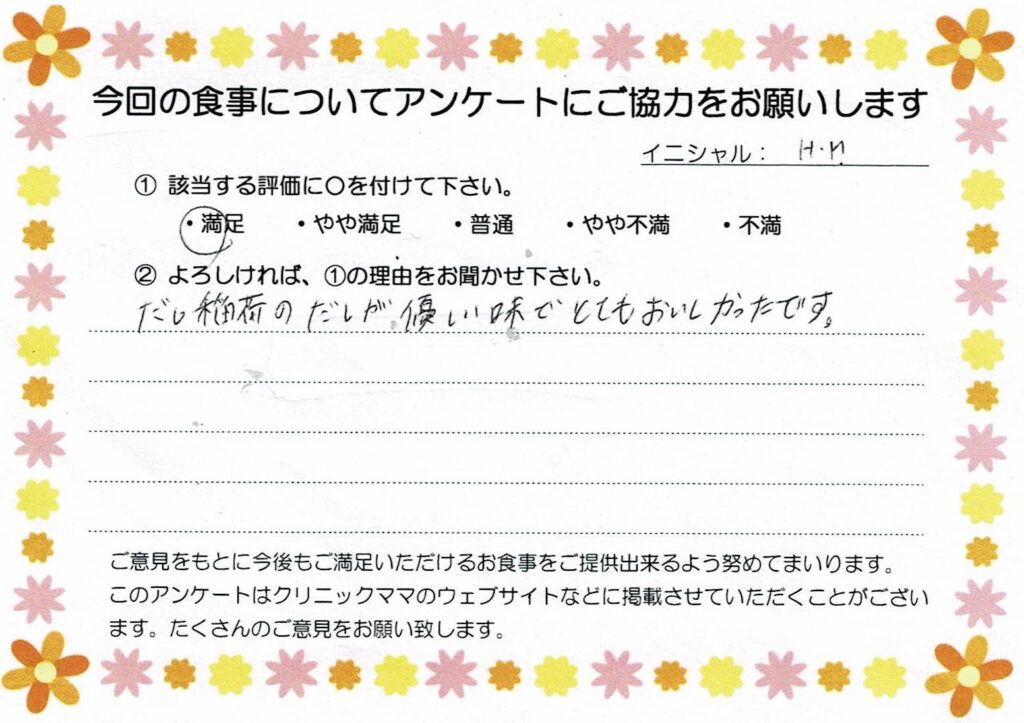 今回の食事についてアンケートにご協力をお願いします
イニシャル： H.M
① 該当する評価に〇を付けて下さい。
・満足 ・やや満足 ・普通 ・やや不満 ・不満
② よろしければ、①の理由をお聞かせ下さい。
だし稲荷のだしが優しい味でとてもおいしかったです。
ご意見をもとに今後もご満足いただけるお食事をご提供出来るよう努めてまいります。
このアンケートはクリニックママのウェブサイトなどに掲載させていただくことがござい
ます。たくさんのご意見をお願い致します。